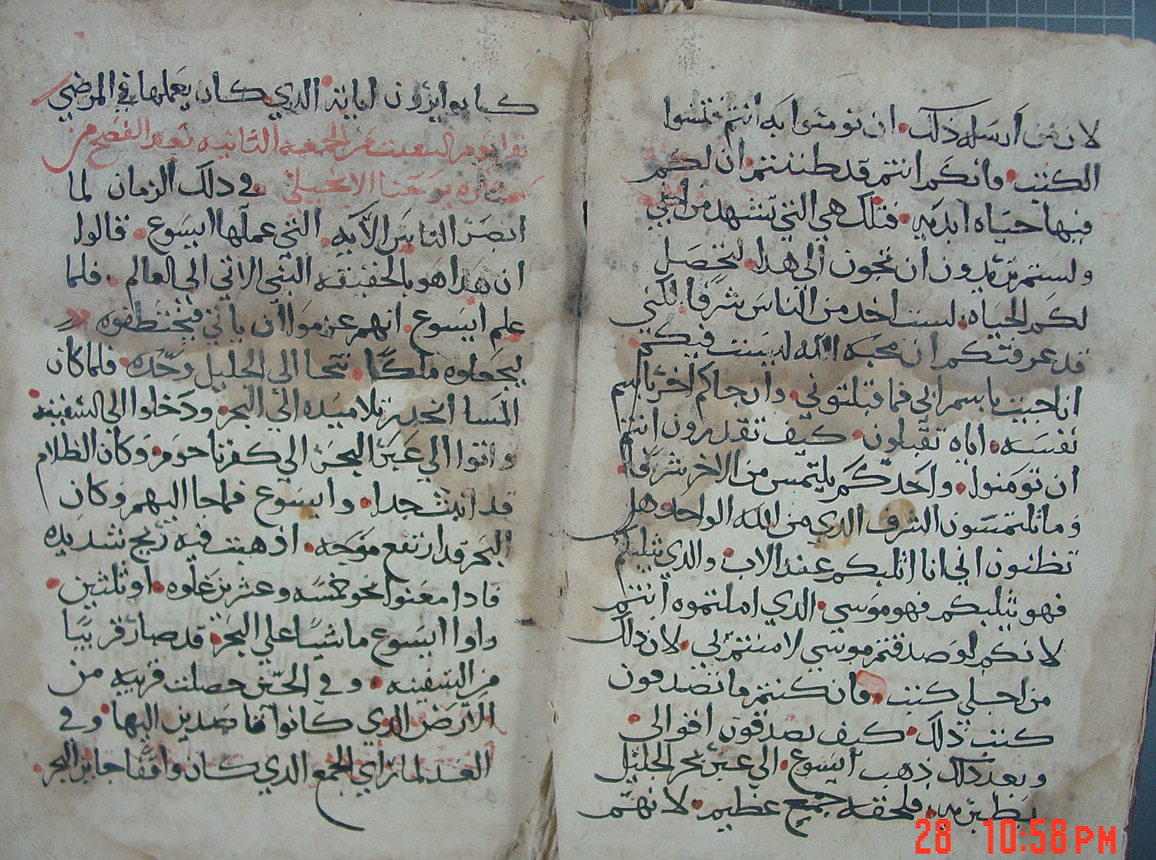 لان من ارسله ذلك. ان تومنوا به انتم فتشوا
الكتب. فانكم انتم قد ظننتم ان لكم
فيها حياه ابديه. فتلك هي التي تشهد من اجلي
ولستم تريدون ان تجون الي هذا. لتحصل
لكم الحياه. لست اخد من الناس شرفا. لكني
قد عرفتكم ان محبه الله ليست فيكم.
انا جيت باسم ابي فما قبلتوني. وان جاكم اخر باسم
نفسه. اياه تقبلون. كيف تقدرون انتم
ان تومنوا. واحدكم يلتمس من الاخر شرفا.
وما تلتمسون الشرف الدي من الله الواحد وهل
تظنون اني انا اثلبكم عند الاب. والدي يثلبكم
فهو يثلبكم فهو موسي. الدي املتموه انتم
لانكم لو صدقتم موسي لامنتم بي. لان دلك
من اجلي كتب. فان كنتم ما تصدقون
كتب ذلك. كيف تصدقون اقوالي.
وبعد دلك ذهب ايسوع. الي عبر بحر الجليل
طبريه. فلحقه جميع عظيم. لانهم
كانوا يرون اياته الدي كان يعملها في المرضي
الجمعه الثانيه بعد الفصح من
يوحنا الانجيلي في دلك الزمان لما
ابصر الناس الآيه. التي عملها ايسوع. قالوا
ان هدا هو بالحقيقه النبي الاتي الي العالم. فلما
علم ايسوع. انهم عزموا ان ياتي فيختطفوه
ليجعلوه ملكا. تنحا الي الجليل وحده. فلما كان
المسا انحدر تلاميده الي البحر. ودخلوا الي السفينه
واتوا الي عبر البحر. الي كفرناحوم. وكان الظلام
قد ابث جدا. وايسوع فما جا اليهم وكان
البحر قد ارتفع موجه. اذ هبت فيه ريح شديده
فادا معنوا نحو خمسه وعشرين غلوه. او ثلثين
راوا ايسوع ماشيا علي البحر. قد صار قريبا
من السفينه. وفي الحين حصلت قريبه من
الارض الدي كانوا قاصدين اليها. وفي
الغد لما راي الجمع الدي كان واقفا جانب البحر.
28 10:58 PM